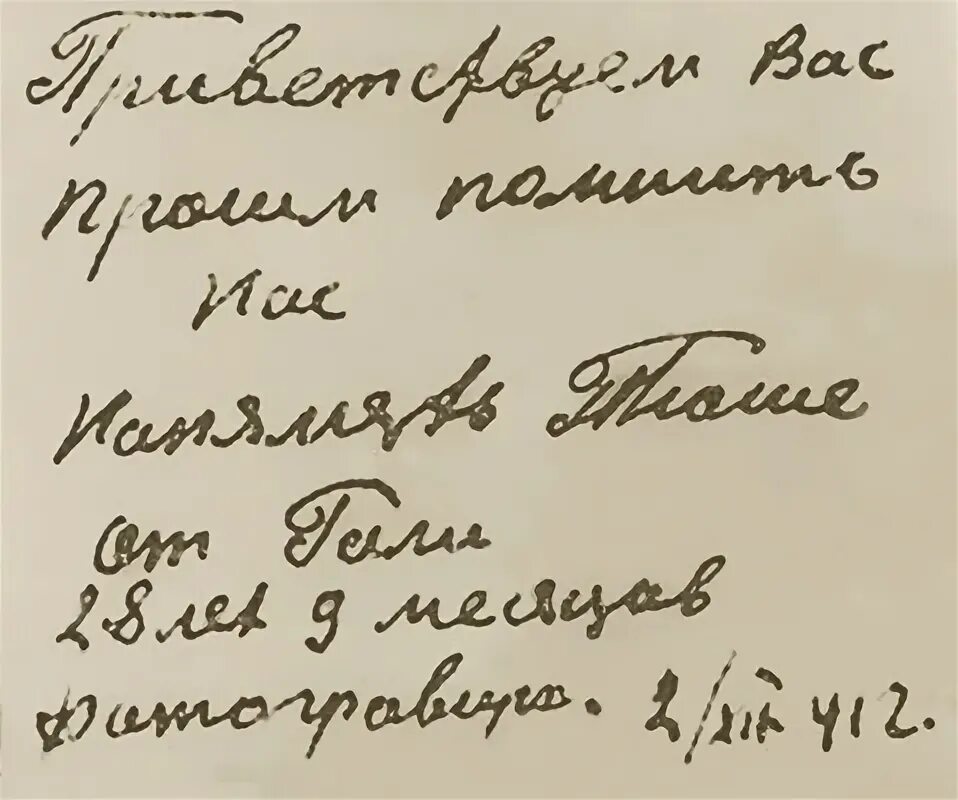 Приветствуем Вас
прошим помнить
нас
Напямять Тюше
от Гали
28 лет 9 месяцав
Фатогравира. 2/XII 41 г.